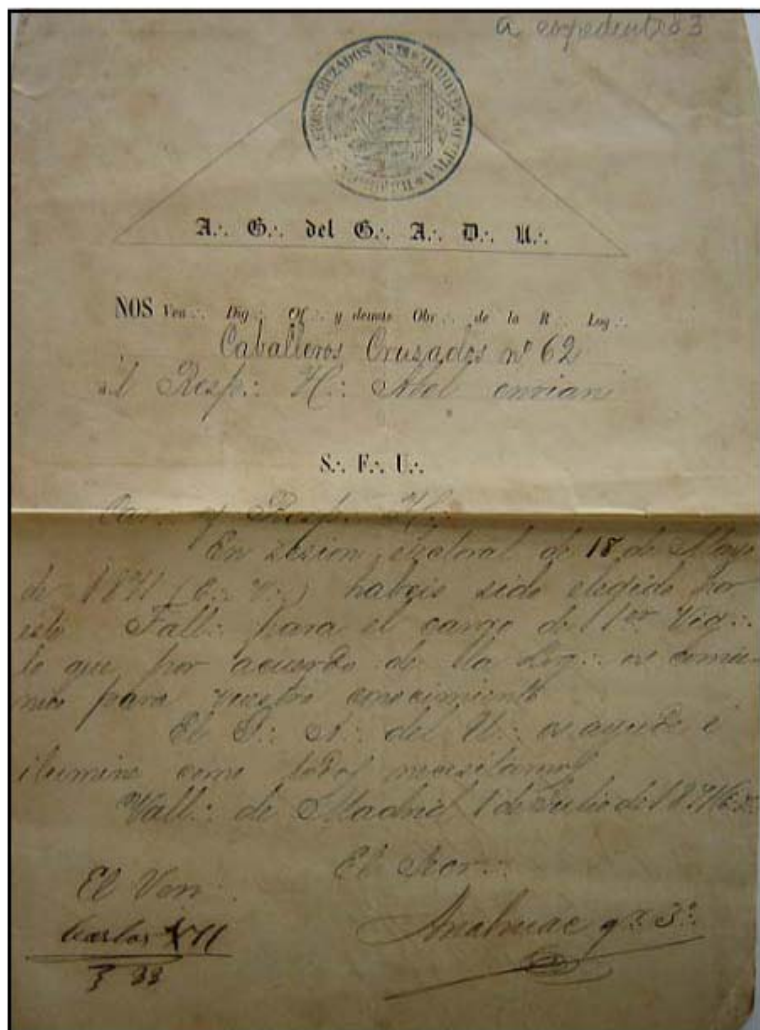 a espediente 3
CRUZADOS Nº
A∴ G∴ del G∴ A∴ D∴ U∴
NOS Ven∴ Dig∴ Of∴ y demas Obr∴ de la R∴ Log∴
Caballeros Cruzados nº 62
al Resp∴ H∴ Abel envian
S∴ F∴ U∴
Car∴ y Resp∴ H∴
En sesion electoral de 18 de Mayo
de 1871 (e∴ v∴) habeis sido elegido por
este Tall∴ para el cargo de 1er Vig∴
lo que por acuerdo de la Log∴ os comuni-
mos para vuestro conocimiento
El G∴ A∴ del U∴ os ayude é
ilumine como todos necesitamos
Vall∴ de Madrid 1 de Julio de 1871 (e∴ v∴
El Ven∴
El Secr∴
Carlos XII
Anahuac gr∴ 3º∴